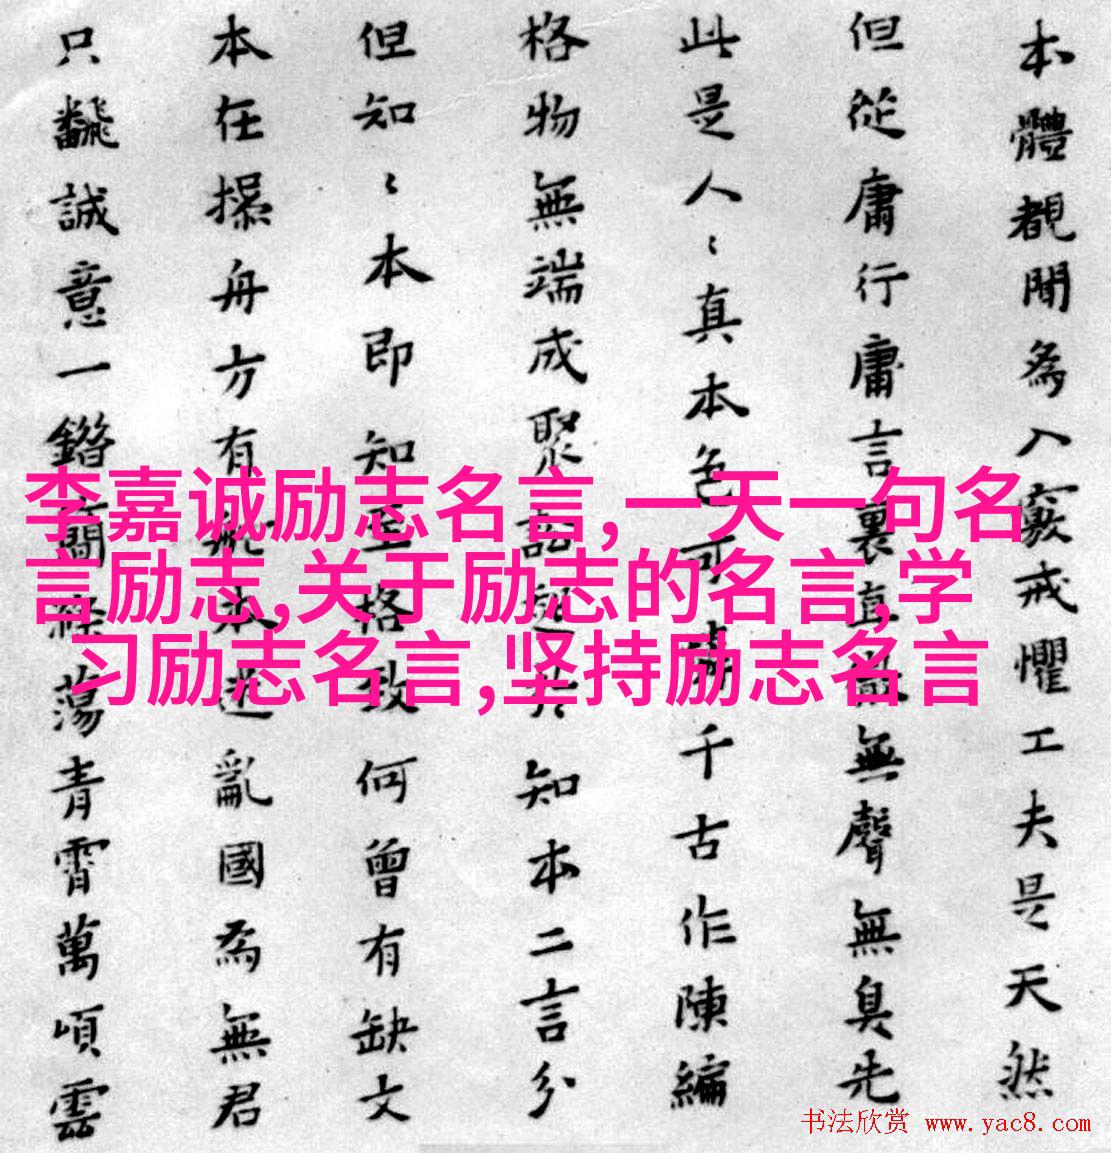 本體覩聞為入竅戒懼工夫是天然
但從庸行庸言裏直無聲無臭先
此是人〻真本色可千古作陳編
格物無端成聚訟起於知本二言分
但知〻本即知至格致何曾有缺文
本在操舟方有本迷亂國為無君
只飜誠意一鐕關綠蕩青霄萬頃雲
李嘉诚励志名言,一天一句名
言励志,关于励志的名言,学
习励志名言,坚持励志名言
书法欣赏 www.yac8.com